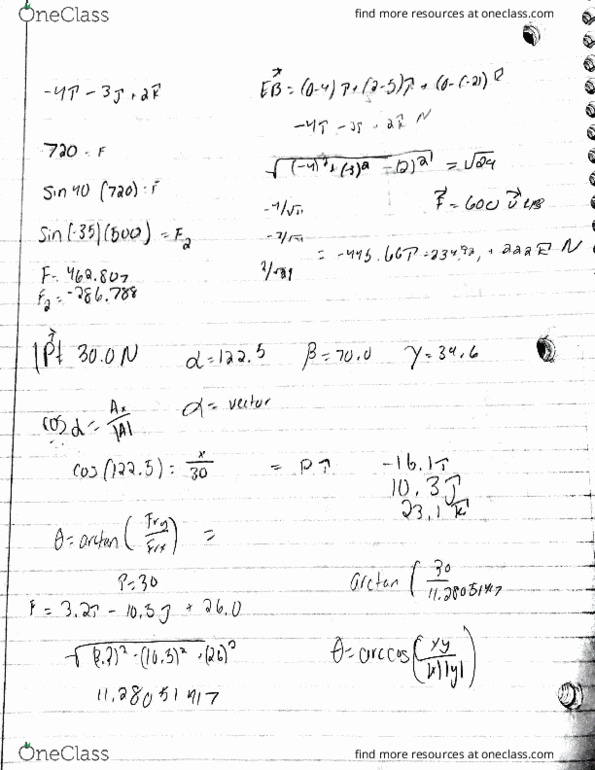 OneClass
find more resources at oneclass.com
-4i - 3j + 2k
EB = (0-4)i + (2-5)j + (0-(-2))k
-4i - 3j + 2k N
720 = F
√((-4)²+(-3)² -(2)²) = √29
Sin 40 (720) = F
F = 600 U EB
-4/√29
Sin(-35)(500) = F₂
-3/√29
= -445.66i - 234.92j + 222k N
2/√29
F = 462.807
F₂ = -286.788
|P| 30.0N α=122.5 β=70.0 γ=34.6
cos α = Ax/|A|
α = vector
cos(122.5) = x/30 = P i
-16.1i
10.3j
23.1k
θ = arctan(Fry/Frx) =
P=30
arctan(30/11.28051417
F = 3.2i - 10.5j + 26.0
√((3.2)² - (10.5)² + (26)²
θ = arccos(xy/|x||y|)
11.28051417
OneClass
find more resources at oneclass.com